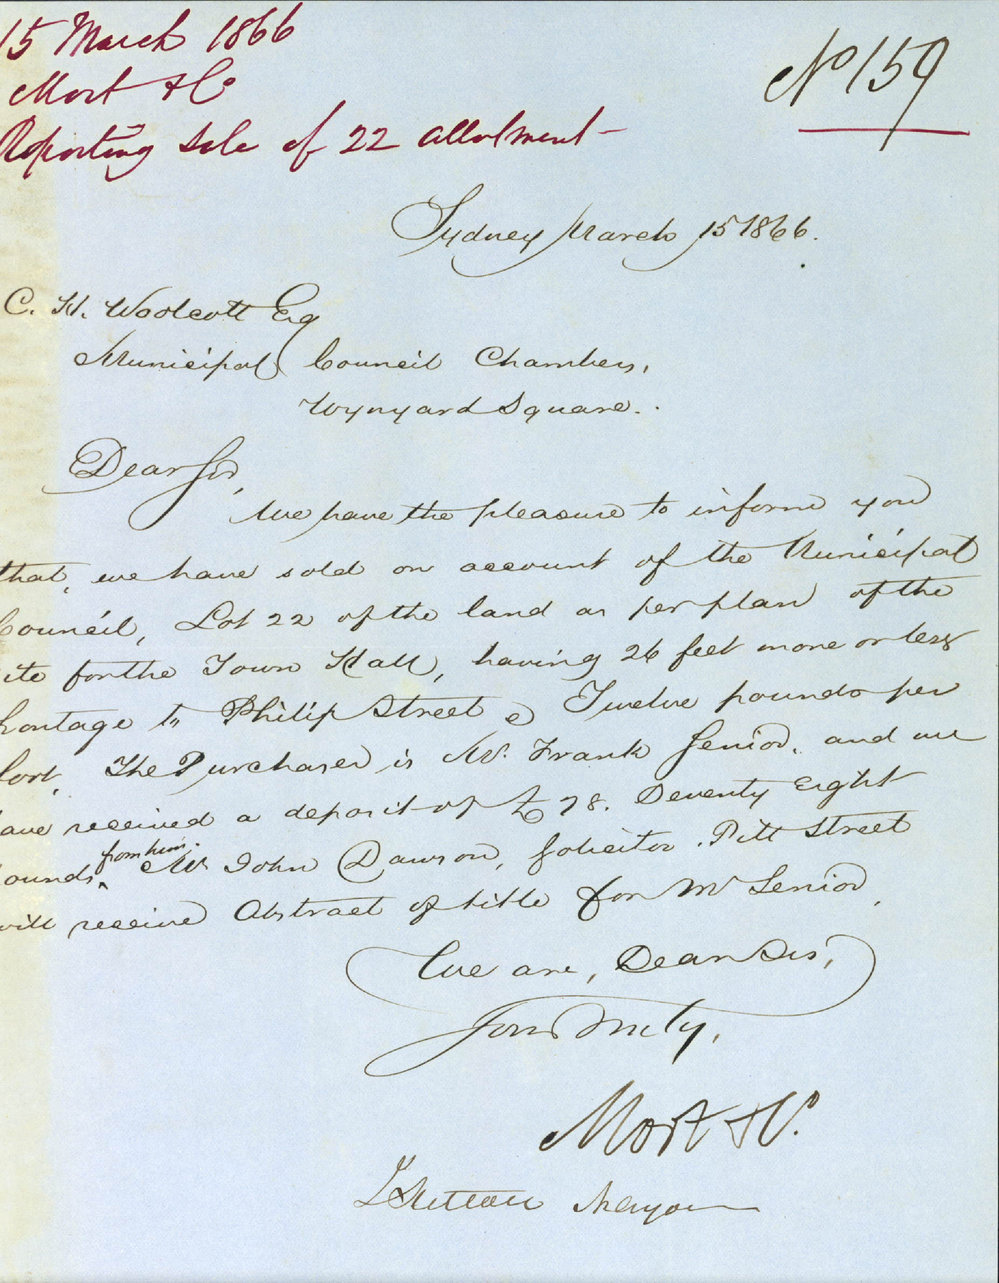 15 March 1866
Mort & Co
Reporting sale of 22 allotment
No 159
Sydney March 15 1866.
C. H. Woolcott Esq
Municipal Council Chambers,
Wynyard Square.
Dear Sir,
We have the pleasure to inform you
that, we have sold on account of the Municipal
Council, Lot 22 of the land as per plan of the
ite for the Town Hall, having 26 feet more or less
frontage to Philip Street @ Twelve pounds per
foot, The Purchaser is Mr. Frank Senior, and we
have received a deposit of £78. Seventy Eight
ounds from him. Mr John Dawson, Solicitor, Pitt Street
will receive Abstract of title for Mr Senior,
We are, Dear Sir,
Yours Truly,
Mort & Co.